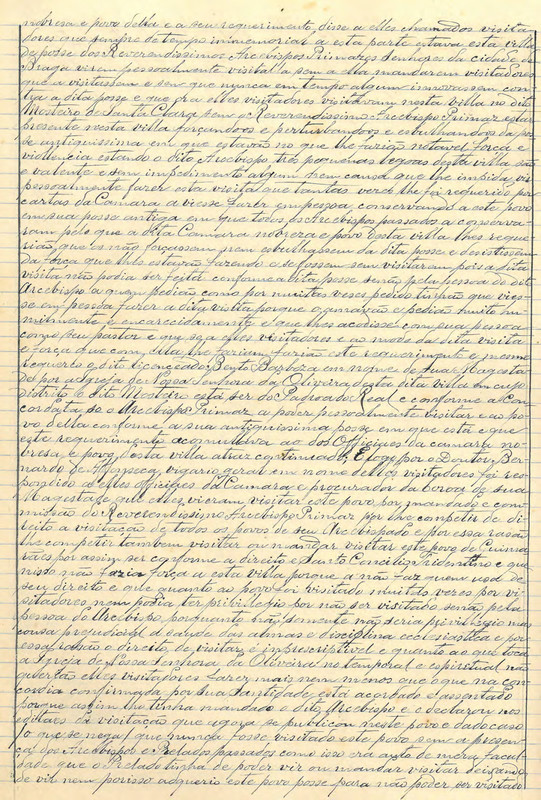 nobresa e povo della e a seu requerimento, disse a elles chamados visita
dores que sempre de tempo immemorial a esta parte estava esta villa
de posse dos Reverendissimos Arcebispos Primazes Senhores da cidade de
Braga virem pessoalmente visital-a sem a ella mandarem visitadores
que a visitassem e sem que nunca em tempo algum innovassem con-
tra a dita posse e que ora elles visitadores visitavam nesta villa no dito
Mosteiro de Santa Clara sem o Reverendissimo Arcebispo Primaz estar
presente nesta villa forçando-os e perturbando-os e esbulhando-os da pos
se antiquissima em que estavão no que lhe fazião notavel força e
violencia estando o dito Arcebispo tres pequenas legoas desta villa são
e valente e sem impedimento algum nem causa que lhe impida vir
pessoalmente fazer esta visita que tantas vezes lhe foi requerido por
cartas da Camara a viesse fazer em pessoa, conservando a este povo
em sua posse antiga em que todos os Arcebispos passados a conserva-
ram pelo que a dita Camara nobreza e povo desta villa lhes reque
rião que os não forçassem nem esbulhassem da dita posse e desistissem
da força que lhes estavão fazendo e se fossem sem visitarem pois a dita
visita não podia ser feita conforme a dita posse senão pela pessoa do dito
Arcebispo a quem pedião como por muitas veses pedido tinhão que vies-
se em pessoa fazer a dita visita porque o amavão e pedião muito hu-
mildemente e encarecidamente e que lhes acodisse com sua pessoa
como seu pastor e que só a elles visitadores e ao modo da dita visita
e força que com ella lhe farião fazião este requerimento e mesmo
requereo o dito licenceado Bento Barboza em nome de Suar Magesta
de por a Igreja de Nossa Senhora da Oliveira desta dita villa em cujo
districto o dito Mosteiro está ser do Padroado Real e conforme a Con-
cordata só o Arcebispo Primaz a poder pessoalmente visitar e ao po-
vo della conforme a sua antiquissima posse em que está e que
este requerimento acomullava ao dos Officiaes da camara no-
bresa e povo desta villa atraz continuado, E logo por o Doutor Ber-
nardo da Fonseca, vigario geral em nome delles visitadores foi res-
pondido a elles officiaes da Camara e procurador da coroa de sua
Magestade que elles vieram visitar este povo por mandado e com-
missão do Reverendissimo Arcebispo Primaz por lhe competir de di-
reito a visitação de todos os povos de seu Arcebispado e por essa rasão
lhe competir tambem visitar ou mandar visitar este povo de Guima
rães por assim ser conforme a direito e Santo Concilio Tridentino e que
nisso não fazia força a esta villa porque a não faz quem usa de
seu direito e que quanto ao povo foi visitado muitas vezes por vi-
sitadores nem podia ter privilegio por não ser visitado senão pela
pessoa do Arcebispo porquanto não somente não seria privilegio mas
cousa prejudicial á saude das almas e disciplina ecclesiastica e por
essa rasão o direito de visitar é imprescriptivel e quanto ao que toca
a Igreja de Nossa Senhora da Oliveira no temporal e espiritual não
querião elles visitadores fazer mais nem menos que o que na con-
cordia confirmada por Sua Santidade está acordado e assentado
porque assim lhe tinha mandado o dito Arcebispo e o declarou nos
editaes da visitação que agora se publicou neste povo e dado caso
(o que se nega) que nunca fosse visitado este povo sem a presen-
ça dos Arcebispos e Prelados passados como isso era auto de mera facul-
dade que o Prelado tinha de poder vir ou mandar visitar deixando
de vir nem porisso adqueria este povo posse para não poder ser visitado